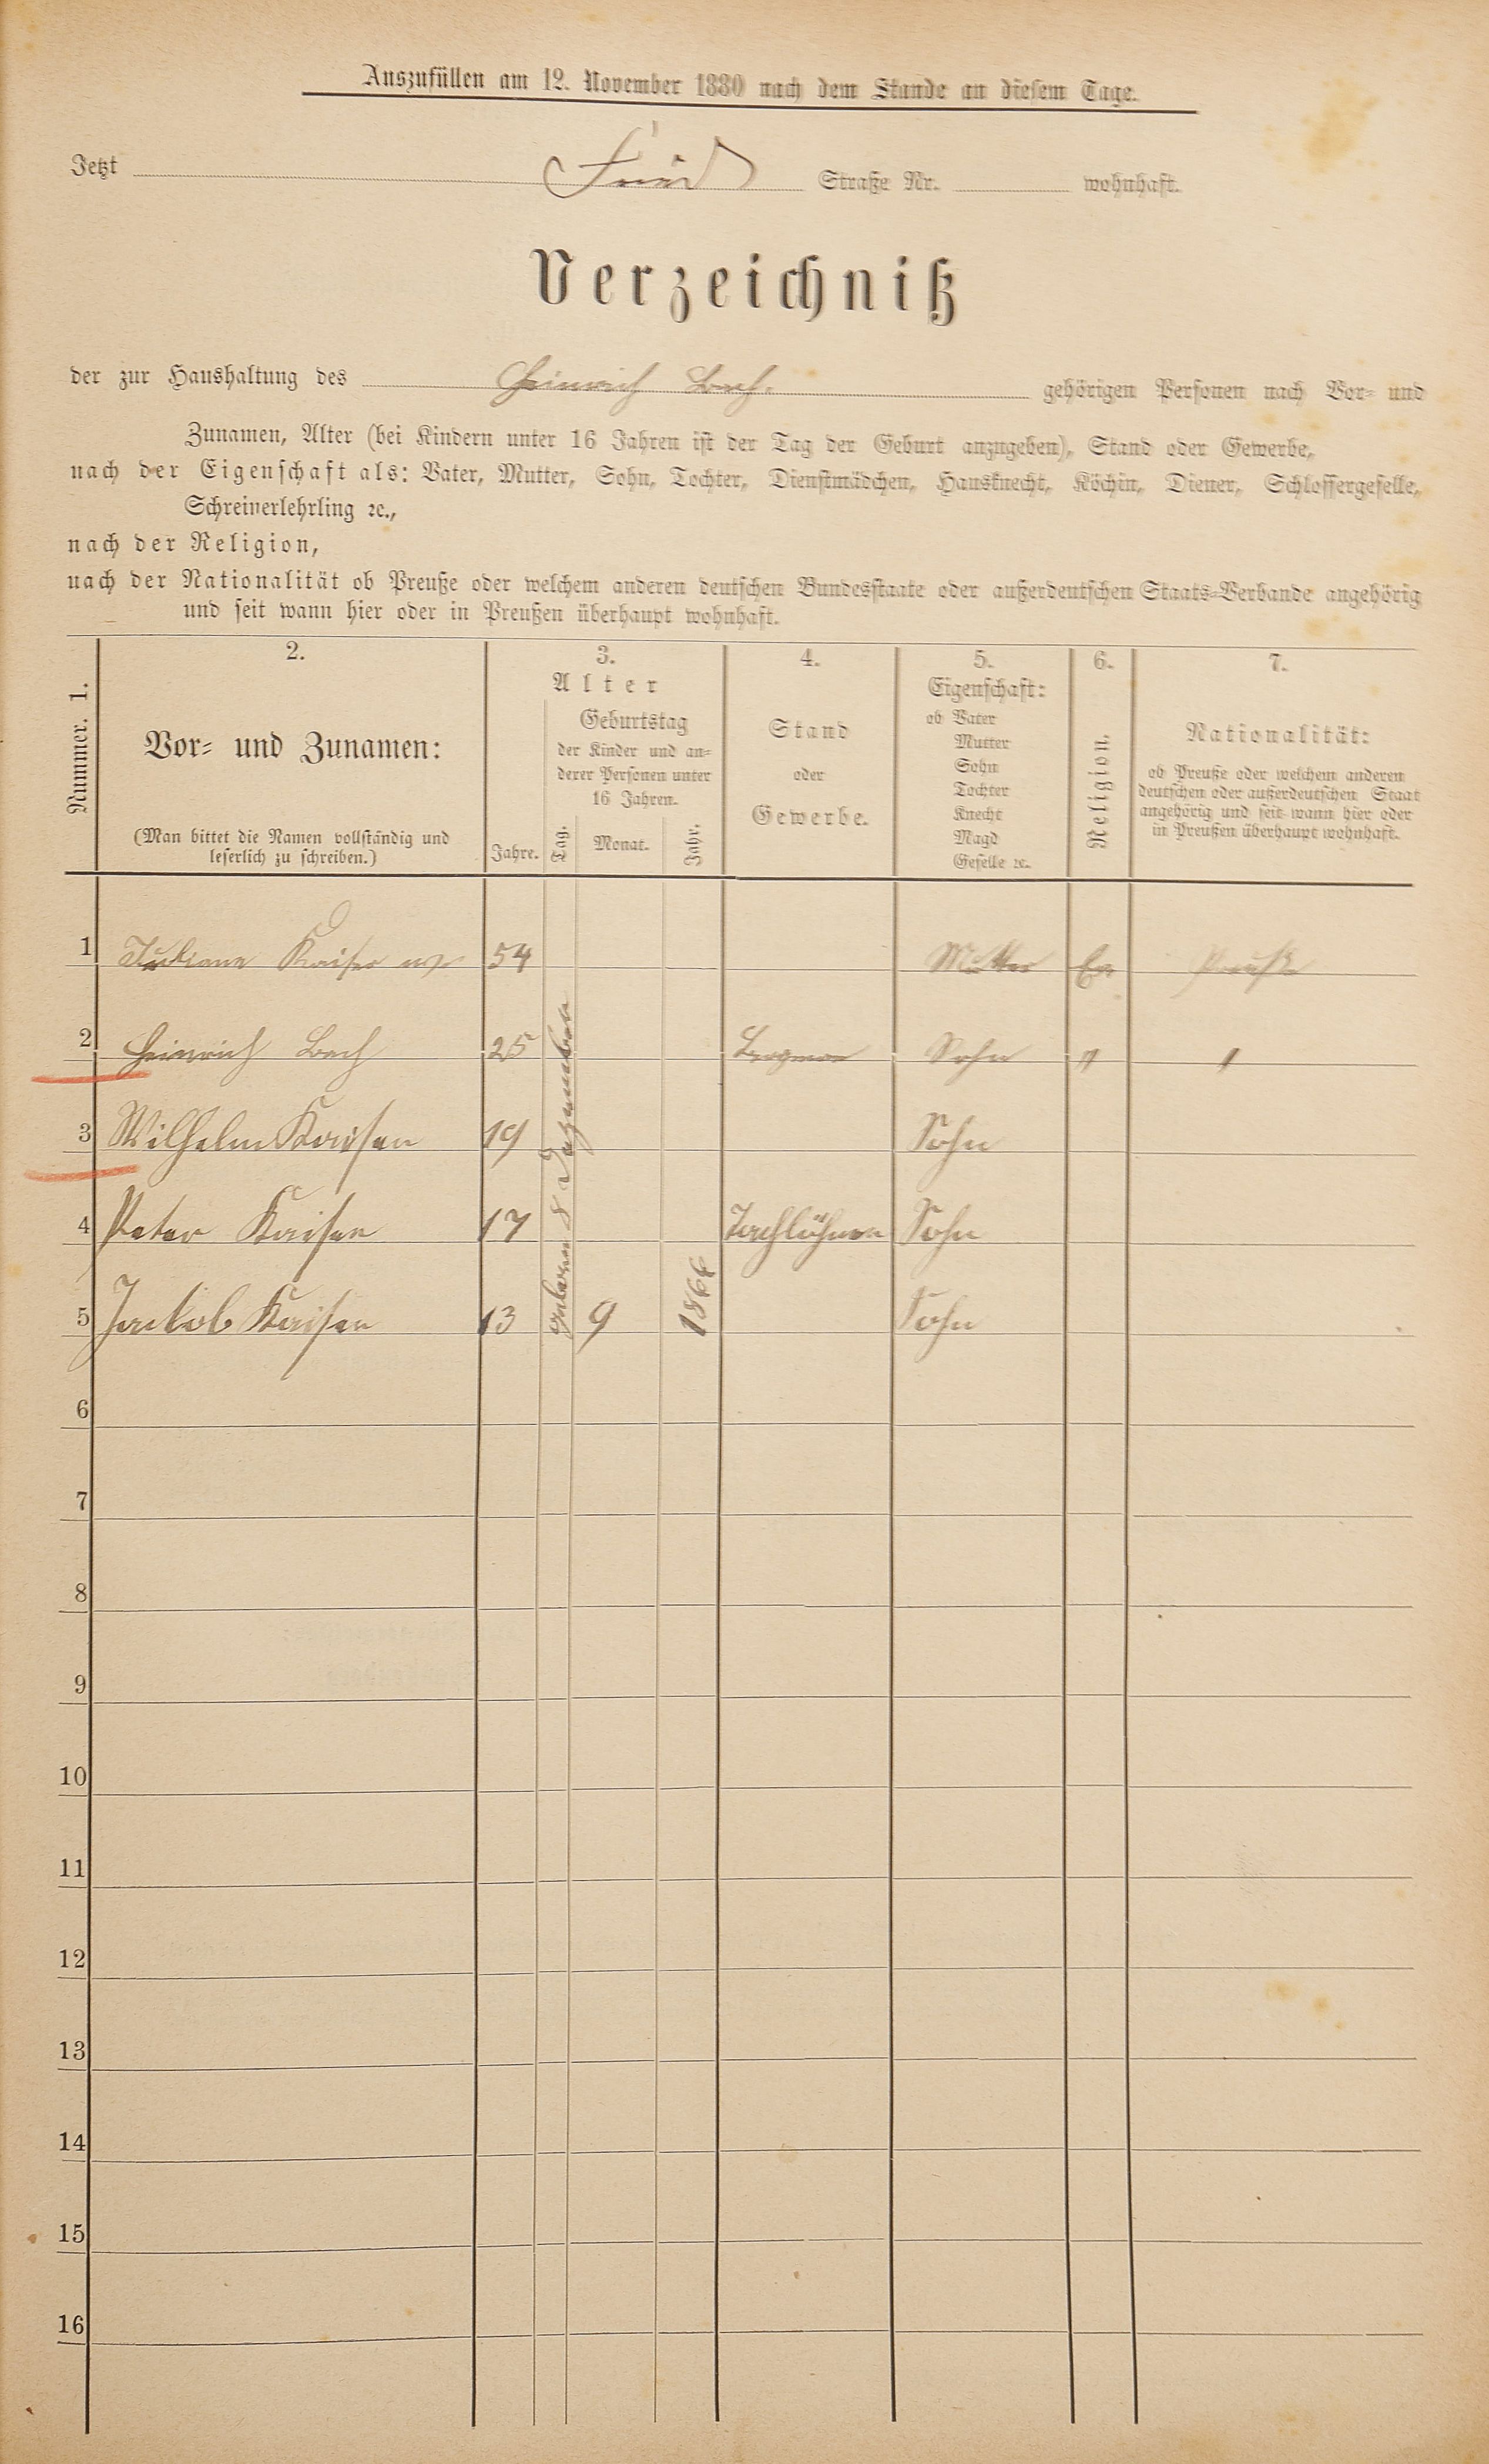 Auszufüllen am 12. November 1880 nach dem Stande an diesem Tage.
Jetzt Straße Nr. wohnhaft.
Verzeichniß
der zur Haushaltung des Heinrich Bach. gehörigen Personen nach Vor- und
Zunamen, Alter (bei Kindern unter 16 Jahren ist der Tag der Geburt anzugeben), Stand oder Gewerbe,
nach der Eigenschaft als: Vater, Mutter, Sohn, Tochter, Dienstmädchen, Hausknecht, Köchin, Diener, Schlossergeselle,
Schreinerlehrling ꝛc.,
nach der Religion,
nach der Nationalität ob Preuße oder welchem anderen deutschen Bundesstaate oder außerdeutschen Staats-Verbande angehörig
und seit wann hier oder in Preußen überhaupt wohnhaft.
Nummer. 1.
2.
Vor- und Zunamen:
(Man bittet die Namen vollständig und
leserlich zu schreiben.)
3.
Alter
Jahre.
Geburtstag
der Kinder und an-
derer Personen unter
16 Jahren.
Tag. Monat. Jahr.
4.
Stand
oder
Gewerbe.
5.
Eigenschaft:
ob Vater
Mutter
Sohn
Tochter
Knecht
Magd
Geselle ꝛc.
6.
Religion.
7.
Nationalität:
ob Preuße oder welchem anderen
deutschen oder außerdeutschen Staat
angehörig und seit wann hier oder
in Preußen überhaupt wohnhaft.
1 Kaiser 54 Mutter Ev Preuße
2 Heinrich Bach 25 Bergman Sohn " "
3 Wilhelm Kaiser 19 Sohn
4 Peter Kaiser 17 Tachlöhner Sohn
5 Jackob Kaiser 13 geboren 8 9 1866 Sohn
6
7
8
9
10
11
12
13
14
15
16